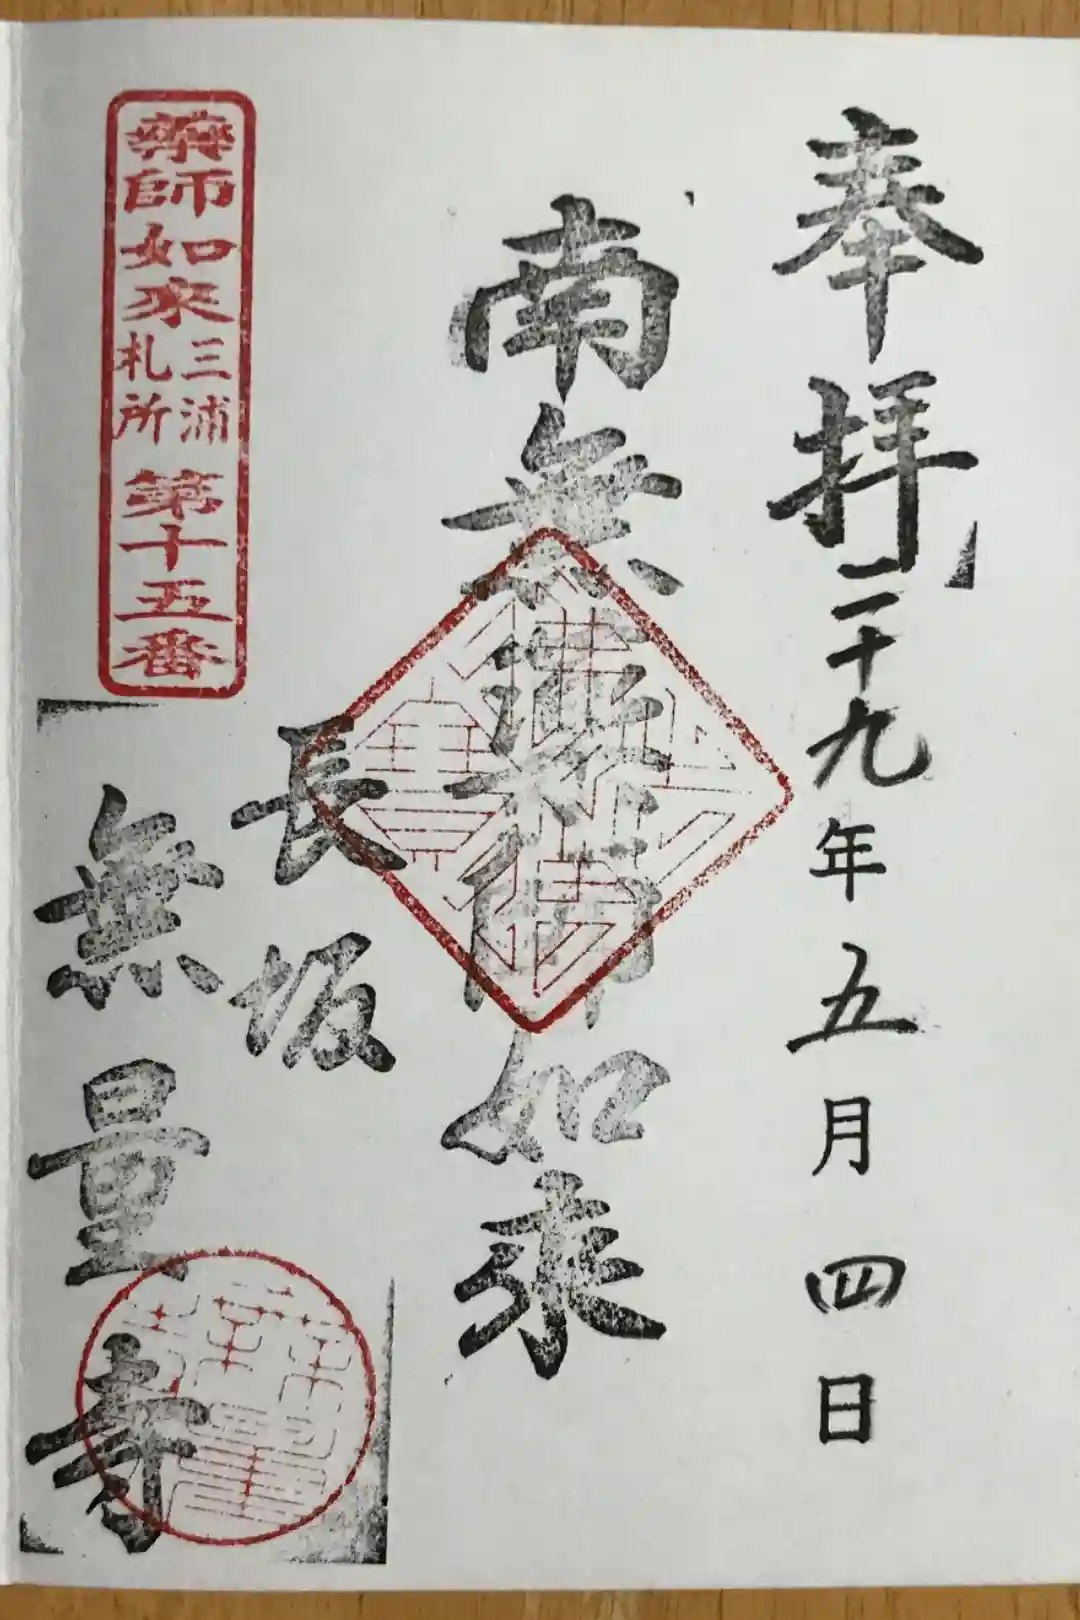 奉拝
二十九年五月四日
南無薬師如来
長坂
無量寺
薬師如来
三浦
札所
第十五番